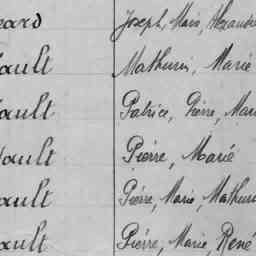 eard Joseph, Marie, Alexandre
ault Mathurin, Marie
ault Patrice, Pierre, Mari
ault Pierre, Marie
ault Pierre, Marie, Mathurin
ault Pierre, Marie, René